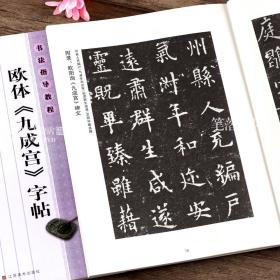 书法指导教程
欧体《九成宫》字帖
附录:欧阳询《九成宫》碑文
州縣人充編戶
氣淑年和迩安
遠肅群生咸遂
靈貺畢臻雖藉